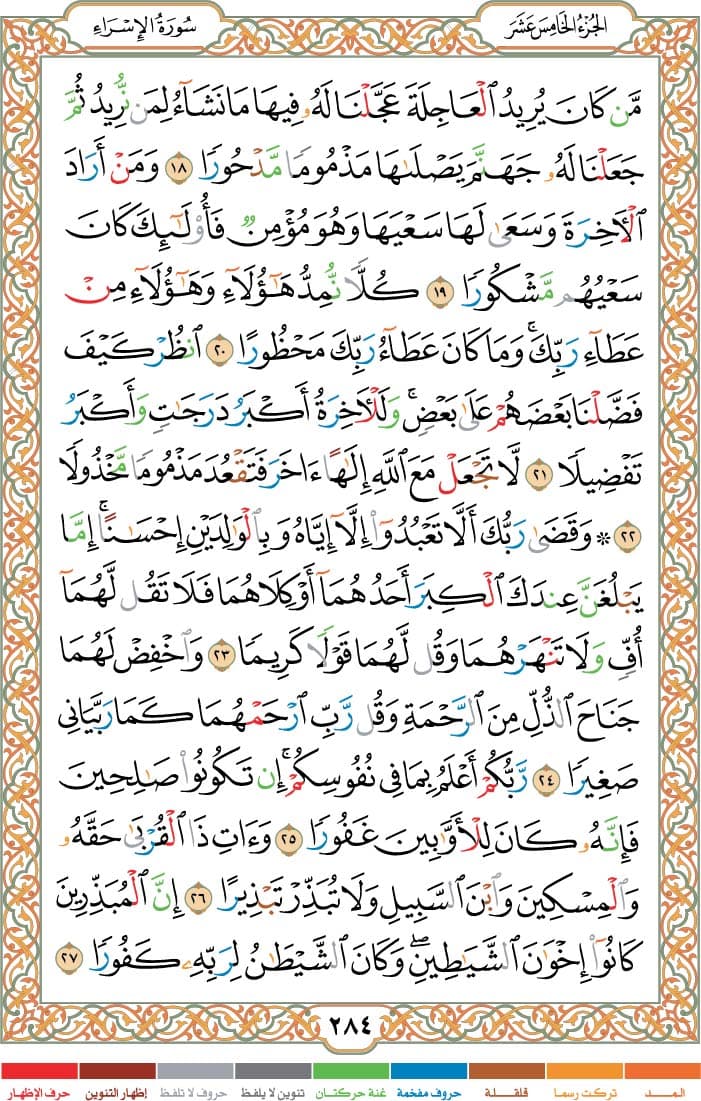 الجزء الخامس عشر
سورة الإسراء
مَّن كَانَ يُرِيدُ ٱلْعَاجِلَةَ عَجَّلْنَا لَهُۥ فِيهَا مَا نَشَآءُ لِمَن نُّرِيدُ ثُمَّ
جَعَلْنَا لَهُۥ جَهَنَّمَ يَصْلَىٰهَا مَذْمُومًا مَّدْحُورًا ١٨ وَمَنْ أَرَادَ
ٱلْأَخِرَةَ وَسَعَىٰ لَهَا سَعْيَهَا وَهُوَ مُؤْمِنٌ فَأُو۟لَـٰٓئِكَ كَانَ
سَعْيُهُم مَّشْكُورًا ١٩ كُلًّا نُّمِدُّ هَـٰٓؤُلَآءِ وَهَـٰٓؤُلَآءِ مِنْ
عَطَآءِ رَبِّكَ ۚ وَمَا كَانَ عَطَآءُ رَبِّكَ مَحْظُورًا ٢٠ ٱنظُرْ كَيْفَ
فَضَّلْنَا بَعْضَهُمْ عَلَىٰ بَعْضٍ ۚ وَلَلْأَخِرَةُ أَكْبَرُ دَرَجَـٰتٍ وَأَكْبَرُ
تَفْضِيلًا ٢١ لَّا تَجْعَلْ مَعَ ٱللَّهِ إِلَـٰهًا ءَاخَرَ فَتَقْعُدَ مَذْمُومًا مَّخْذُولًا
٢٢ ۞ وَقَضَىٰ رَبُّكَ أَلَّا تَعْبُدُوٓا۟ إِلَّآ إِيَّاهُ وَبِٱلْوَٰلِدَيْنِ إِحْسَـٰنًا ۚ إِمَّا
يَبْلُغَنَّ عِندَكَ ٱلْكِبَرَ أَحَدُهُمَآ أَوْ كِلَاهُمَا فَلَا تَقُل لَّهُمَآ
أُفٍّ وَلَا تَنْهَرْهُمَا وَقُل لَّهُمَا قَوْلًا كَرِيمًا ٢٣ وَٱخْفِضْ لَهُمَا
جَنَاحَ ٱلذُّلِّ مِنَ ٱلرَّحْمَةِ وَقُل رَّبِّ ٱرْحَمْهُمَا كَمَا رَبَّيَانِى
صَغِيرًا ٢٤ رَّبُّكُمْ أَعْلَمُ بِمَا فِى نُفُوسِكُمْ ۚ إِن تَكُونُوا۟ صَـٰلِحِينَ
فَإِنَّهُۥ كَانَ لِلْأَوَّٰبِينَ غَفُورًا ٢٥ وَءَاتِ ذَا ٱلْقُرْبَىٰ حَقَّهُۥ
وَٱلْمِسْكِينَ وَٱبْنَ ٱلسَّبِيلِ وَلَا تُبَذِّرْ تَبْذِيرًا ٢٦ إِنَّ ٱلْمُبَذِّرِينَ
كَانُوٓا۟ إِخْوَٰنَ ٱلشَّيَـٰطِينِ ۖ وَكَانَ ٱلشَّيْطَـٰنُ لِرَبِّهِۦ كَفُورًا ٢٧
٢٨٤
المــــد
تركت رسما
قلقـــلة
حروف مفخمة
غنة حركتان
تنوين لا يلفظ
حروف لا تلفظ
إظهار التنوين
حرف الإظهار